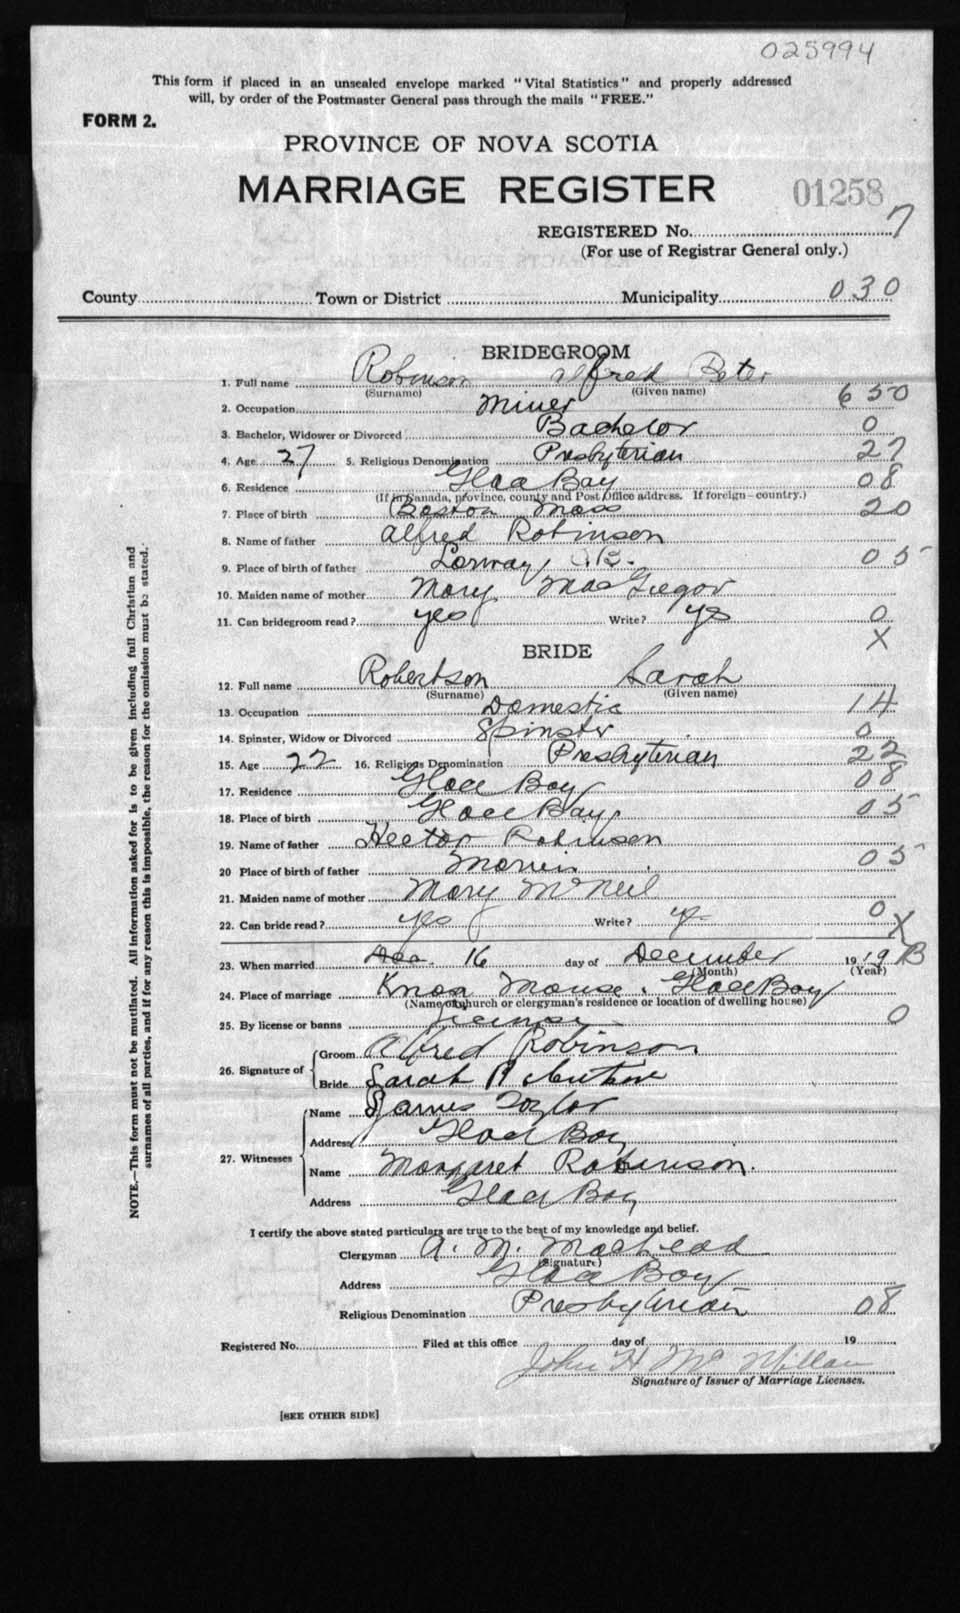 025994
This form if placed in an unsealed envelope marked "Vital Statistics" and properly addressed
will, by order of the Postmaster General pass through the mails "FREE."
FORM 2.
PROVINCE OF NOVA SCOTIA
MARRIAGE REGISTER 01258
REGISTERED No. 7
(For use of Registrar General only.)
County Town or District Municipality 030
BRIDEGROOM
1. Full name Robinson Alfred Peter 650
(Surname) (Given name)
2. Occupation Miner
3. Bachelor, Widower or Divorced Bachelor 0
4. Age 27 5. Religious Denomination Presbyterian 27
6. Residence Glace Bay 08
(If in Canada, province, county and Post Office address. If foreign—country.)
7. Place of birth Boston Mass 20
8. Name of father Alfred Robinson
9. Place of birth of father Lorway C.B. 05
10. Maiden name of mother Mary MacGregor
11. Can bridegroom read? yes Write? yes 0
X
BRIDE
12. Full name Robertson Sarah
(Surname) (Given name)
13. Occupation Domestic 14
14. Spinster, Widow or Divorced Spinster 0
15. Age 22 16. Religious Denomination Presbyterian 22
17. Residence Glace Bay 08
18. Place of birth Glace Bay 05
19. Name of father Hector Robinson
20 Place of birth of father 05
21. Maiden name of mother Mary McNeil
22. Can bride read? yes Write? yes 0
X
23. When married 16 day of December 1919 B
(Month) (Year)
24. Place of marriage Knox Manse. Glace Bay
(Name of church or clergyman's residence or location of dwelling house)
25. By license or banns license 0
26. Signature of Groom Alfred Robinson
Bride Sarah
27. Witnesses Name James Taylor
Address Glace Bay
Name Margaret Robinson.
Address Glace Bay
I certify the above stated particulars are true to the best of my knowledge and belief.
Clergyman A. M. MacLeod
(Signature)
Address Glace Bay
Religious Denomination Presbyterian 08
Registered No. Filed at this office day of 19
John H McMillan
Signature of Issuer of Marriage Licenses.
[SEE OTHER SIDE]
NOTE.—This form must not be mutilated. All information asked for is to be given including full Christian and
surnames of all parties, and if for any reason this is impossible, the reason for the omission must be stated.